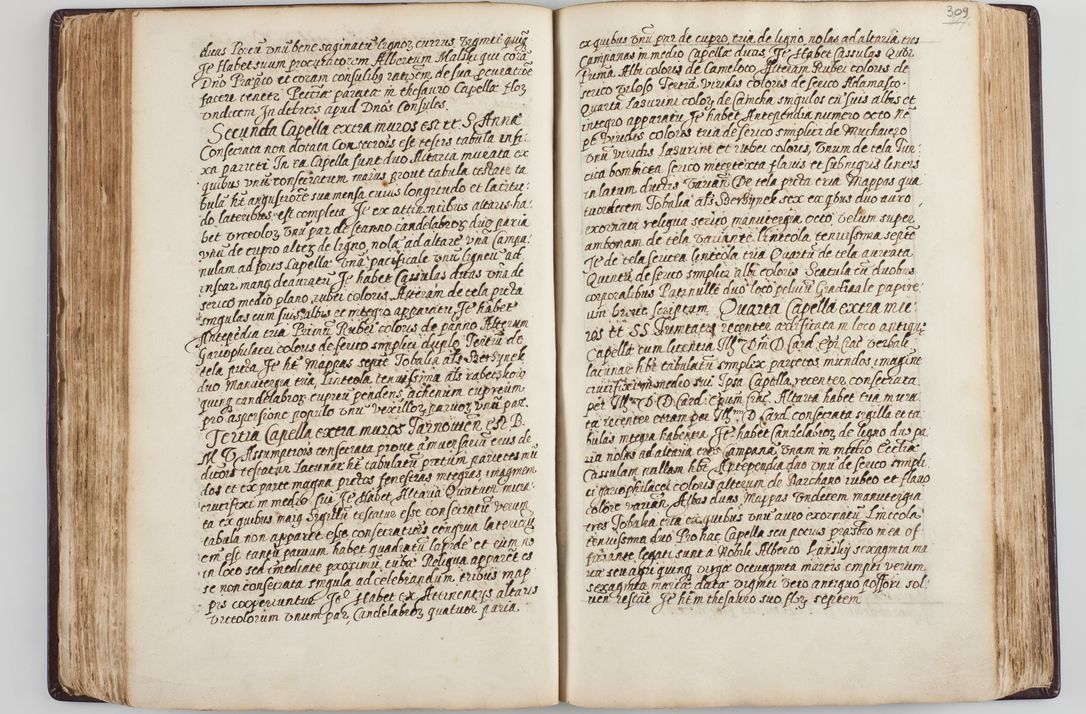 duas Porcū vnū bene saginatū lignoꝝ currus vigmti quiqȝ
Je Habet suum procuratorem Albertum Malski qui corā
Dnō Præpto et coram consulibȝ ratōem de sua pcuratiōe
facere tenetr Peccīa parata in thesauro Capellæ floꝝ
vndecem In debitis apud Dnōs Consules.
Secunda Capella extra muros est tt S. Annæ
Consecrata non dotata Consecrōis esse testis tabula infi
xa parieti In ea Capella sunt duo Altaria murata ex
quibus vnū consecratum maius prout tabula testatr ta
bula ht angustiorē sua mensa cuius longitudo et latitu
do lateribus est completa Je ex attinentibus altaris ha
bet vrceoloꝝ vnū par de stanno candelabroꝝ duo paria
vnū de cupro alteꝝ de ligno, nola ad altare vna Campa
nulam ad fores Capellæ vnā pacificale vnū ligneū ad
instar manꝰ deauratū Je habet Cassulas duas vna de
serico medio plano rubei coloris Alteram de tela picta
singulas cum suis albis et integro apparatu Je habet
Antepēdia tria Primū Rubei coloris de panno Alterum
Gariophilacei coloris de serico simplici duplo Tertiū de
tela picta Je ht Mappas septē Tobalia als Szerszynek
duo Manutergia tria, Linteola tenuissima als rabetskow
quinqȝ candelabroꝝ cupreū pendens, achenim cupreum
pro aspersione populo vnū vexilloꝝ paruoꝝ vnū par.
Tertia Capella extra muros Tarnouien est B.
M V Assumptiōis consecrata prout anniuersariū eius de
dicōis testatur Lacunar ht tabulatū pictum parietes mū
dos et ex parte magna pictos fenestras integras imaginem
crucifixi in medio sui Je Habet Altaria Quatuor mura
ta ex quibus maiꝰ Sigillū testatur esse consecratū verum
tabula non apparet esse consecrationis congrua latericijs
em est tantū paruum habet quadratū lapide et cum no
in loco sed imediate proximū cubā Reliqua apparēt es
se non consecrata singula ad celebrandum tribus map
pis cooperiuntur Je Habet ex Attinentijs altaris
vrceolorum vnum par, Candelabroꝝ quatuor paria
309
ex quibus vnū par de cupro, tria de ligno nolas ad altaria, tres
Campanas in medio Capellæ duas, Je Habet Cassulas Quatr
Prima Albi coloris de Cameloto, Alteram Rubei coloris de
serico viloso Tertiā viridis coloris de serico Adamasco
Quartā Lasurini coloꝝ de Camcha singulos cū suis albis et
integro apparatu Je habet Antependia numero octo Ne
pe viridis coloris tria de serico simplici de Muchaiero
vnū viridis Lasurini et rubei coloris, vnum de tela Tur
cica bombicea serico integtexta flauis et subnigris lineis
in latum ductis variatū De tela picta tria Mappas qua
tuordecem Tobalia als Szerszynek sex ex qbus duo auro
exornata reliqua serico manutergia octo velum super
ambonam de tela variante Linteola tenuissima septē
Je de tela serica Linteola tria Quartū de tela aurata
Quintū de serico simplici albi coloris Scatula cū duobus
corporalibus Patinullē duo loco peluiū Graduale papire
um breuit scriptum Quarta Capella extra mu
ros tt SS Trinitatis recenter ædificata in loco antiquę
Capellæ cum licentia Illmi Dni D Card. Epi Crac verbali
Lacunar hēt tabulatū simplex parietes mundos, imaginē
crucifixi in medio sui Ipsa Capella recenter consecrata
per Illm D D Card: Epum hūc Altaria habet tria mura
ta recenter etiam per Illmm D Card consecrata sigilla et ta
bulas integra habentia Je habet Candelabroꝝ de ligno duo pa
ria nolas ad altaria tres Campanā vnam in medio Eccliæ
Cassulam nullam hēt Antependia duo vnū de serico simpli
ci gariophilacei coloris alterum de Barchano rubeo et flauo
colore variatū Albas duas Mappas vndecem manutergia
tres Tobalia tria ex quibus vnū auro exornatū Linteola
tenuissima duo Pro hac Capella seu potius præsbro in ea of
ficiante legati sunt a Nobile Alberto Łański sexaginta ma
rcæ seu agri quinqȝ virgæ octuaginta marcis empti verum
sexaginta marcæ datæ viginti vero antiquo possori sol
uen restāt Je hēt in thesauro suo floꝝ septem